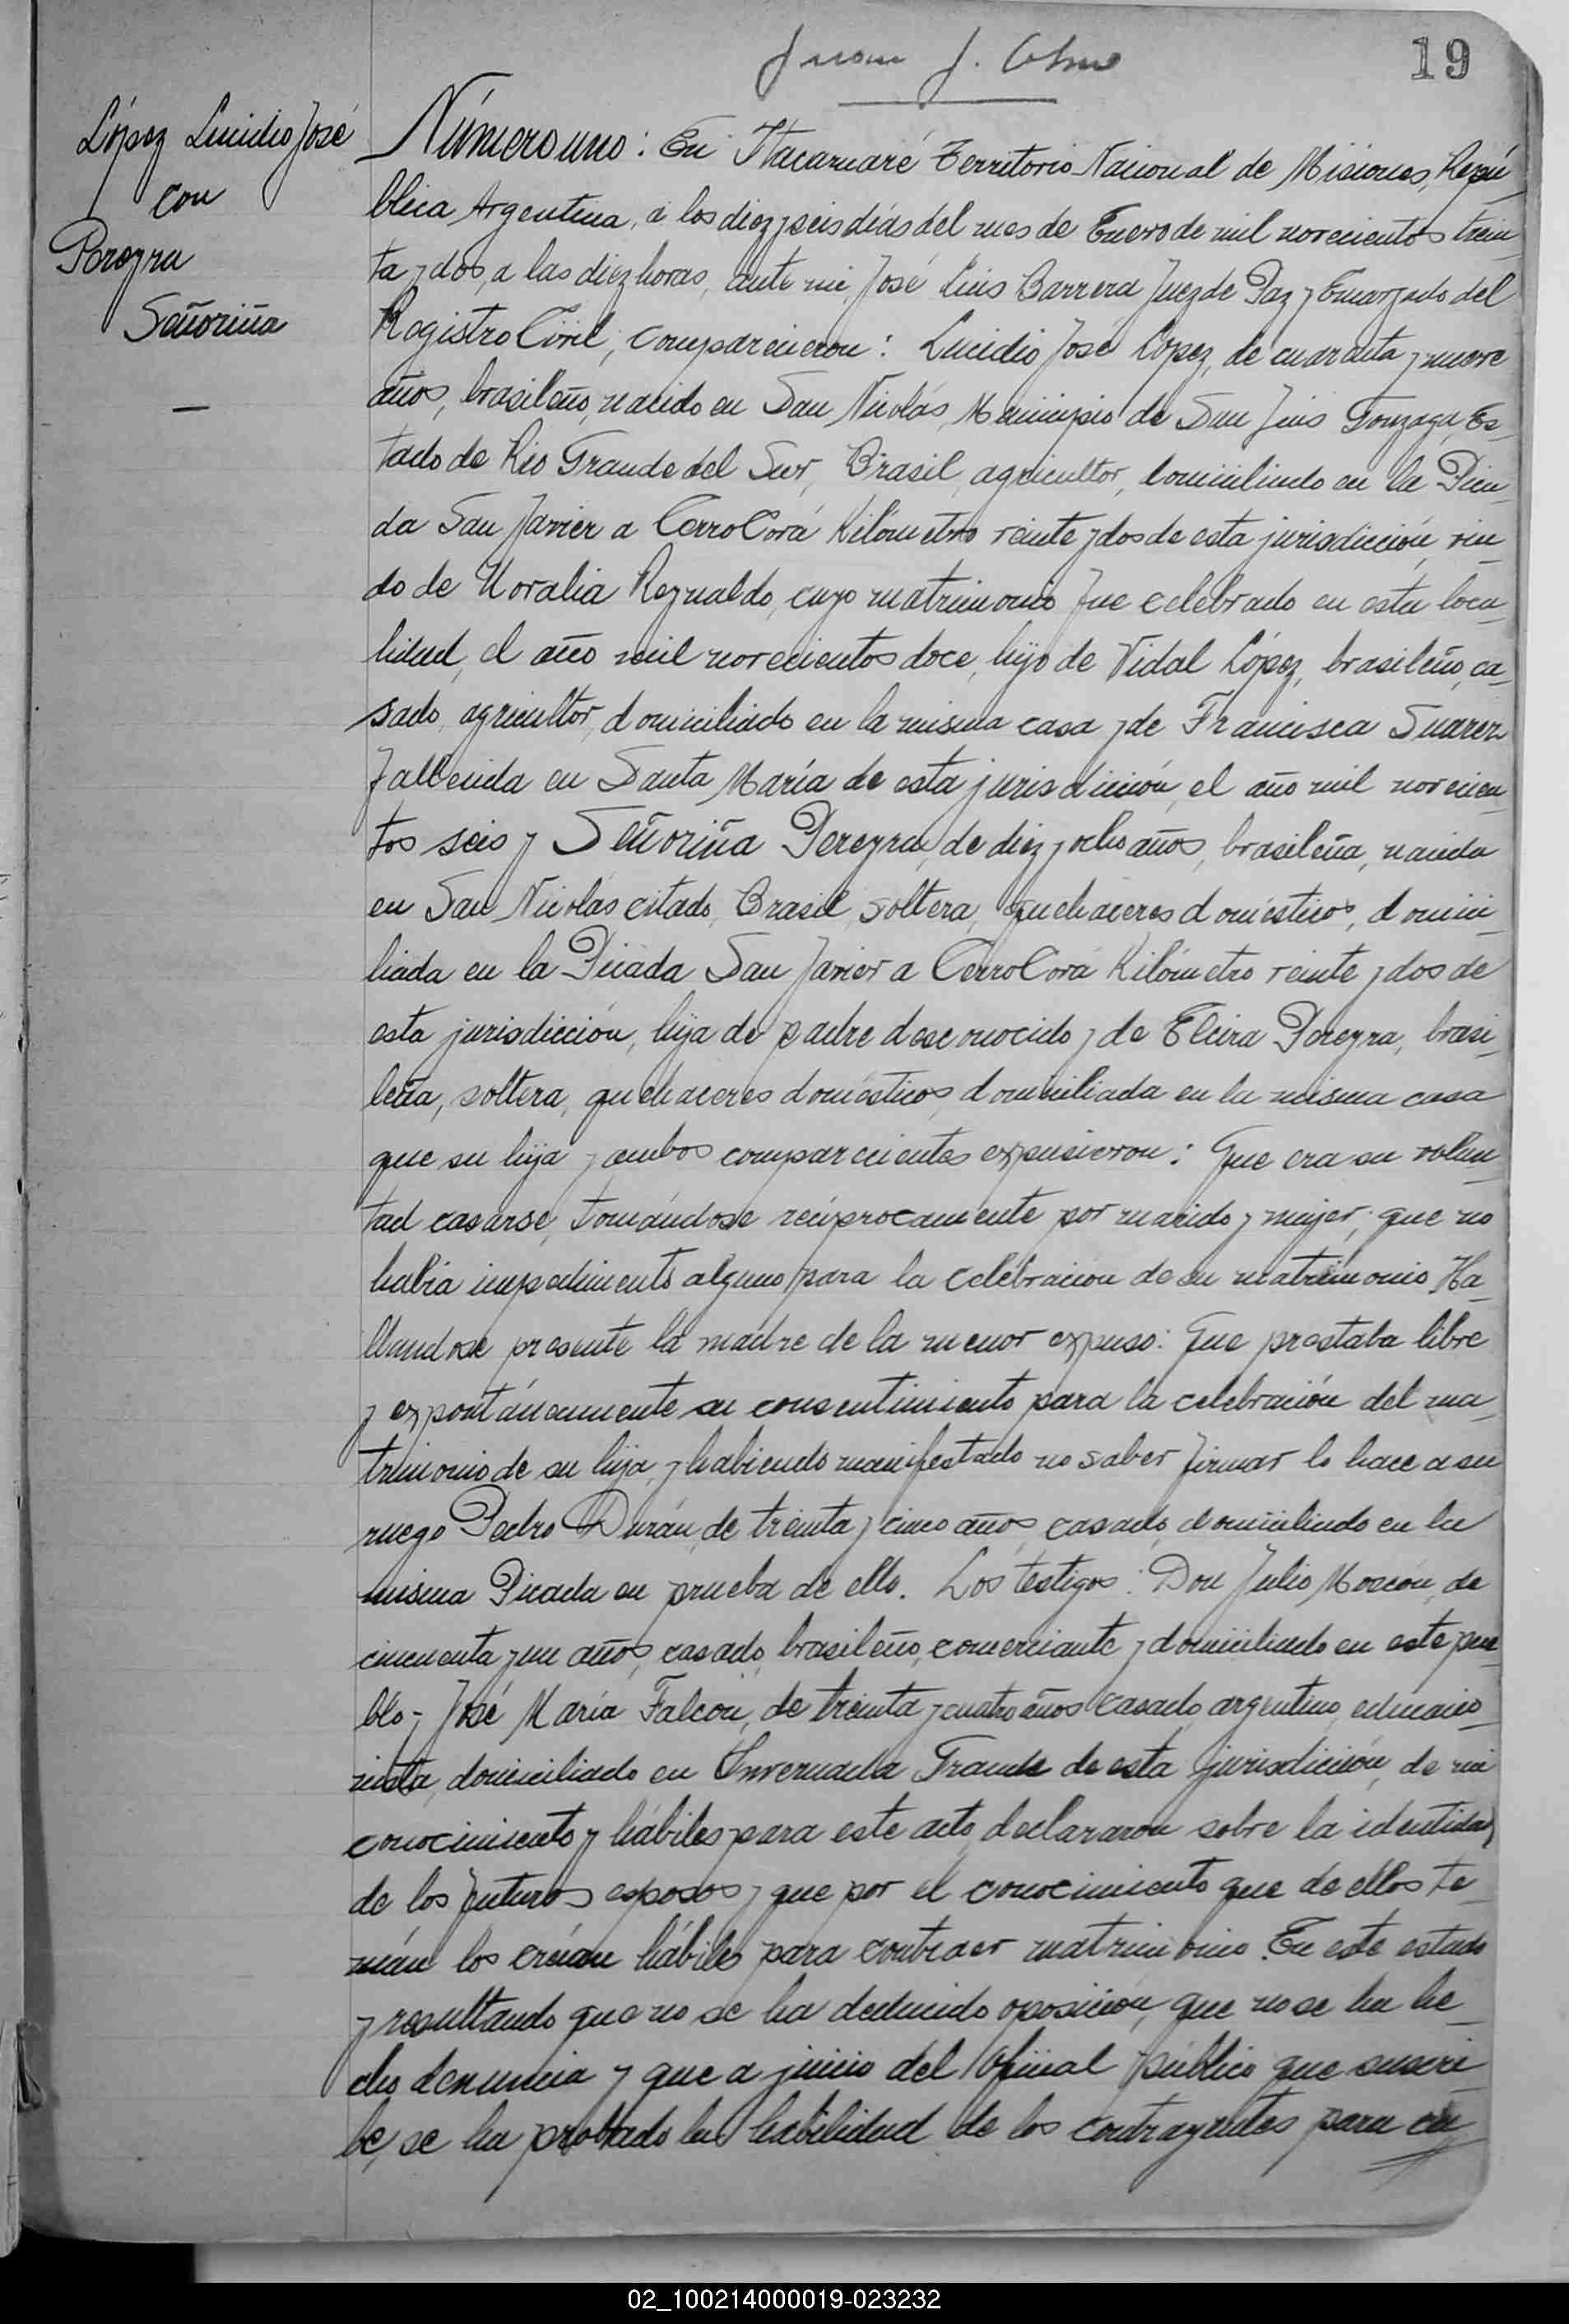 19
López Lucidio José
con
Pereyra
Señoriña
Número uno: En Itacaruaré Territorio Nacional de Misiones, Repú_
blica Argentina, a los diez y seis días del mes de Enero de mil novecientos trein_
ta y dos, a las diez horas, ante mi, José Luis Barrera Juez de Paz y Encargado del
Registro Civil, comparecieron: Lucidio José López, de cuarenta y nueve
años, brasileño, nacido en San Nicolás, Municipio de San Luis Gonzaga, Es_
tado de Rio Grande del Sur, Brasil, agricultor, domiciliado en la Pica_
da San Javier a Cerro Corá Kilómetro veinte y dos de esta jurisdicción, viu_
do de Noralia Reynaldo, cuyo matrimonio fue celebrado en esta loca_
lidad, el año mil novecientos doce, hijo de Vidal López, brasileño, ca_
sado, agricultor, domiciliado en la misma casa y de Francisca Suarez
fallecida en Santa María de esta jurisdicción, el año mil novecien_
tos seis y Señoriña Pereyra, de diez y ocho años, brasileña, nacida
en San Nicolás estado, Brasil, soltera, quehaceres domésticos, domici_
liada en la Picada San Javier a Cerro Corá Kilómetro veinte y dos de
esta jurisdicción, hija de padre desconocido y de Elvira Pereyra, brasi_
leña, soltera, quehaceres domésticos, domiciliada en la misma casa
que su hija y ambos comparecientes expusieron: Que era su volun_
tad casarse, tomándose recíprocamente por marido y mujer, que no
había impedimento alguno para la celebración de su matrimonio Ha_
llandose presente la madre de la menor expuso: Que prestaba libre
y expontáneamente su consentimiento para la celebración del ma_
trimonio de su hija, y habiendo manifestado no saber firmar lo hace a su
ruego Pedro Durán, de treinta y cinco años, casado, domiciliado en la
misma Picada en prueba de ello. Los testigos: Don Julio Moscón, de
cincuenta y un años, casado, brasileño, comerciante y domiciliado en este pue_
blo y José María Falcón, de treinta y cuatro años casado, argentino, educacio_
nista, domiciliado en Invernada Grande de esta jurisdicción, de mi
conocimiento y hábiles para este acto, declararon sobre la identidad
de los futuros esposos y que por el conocimiento que de ellos te_
nían los creían hábiles para contraer matrimonio. En este estado
y resultando que no se ha deducido oposición, que no se ha he_
cho denuncia y que a juicio del Oficial público que suscri_
be, se ha probado la habilidad de los contrayentes para ca_
02_100214000019-023232